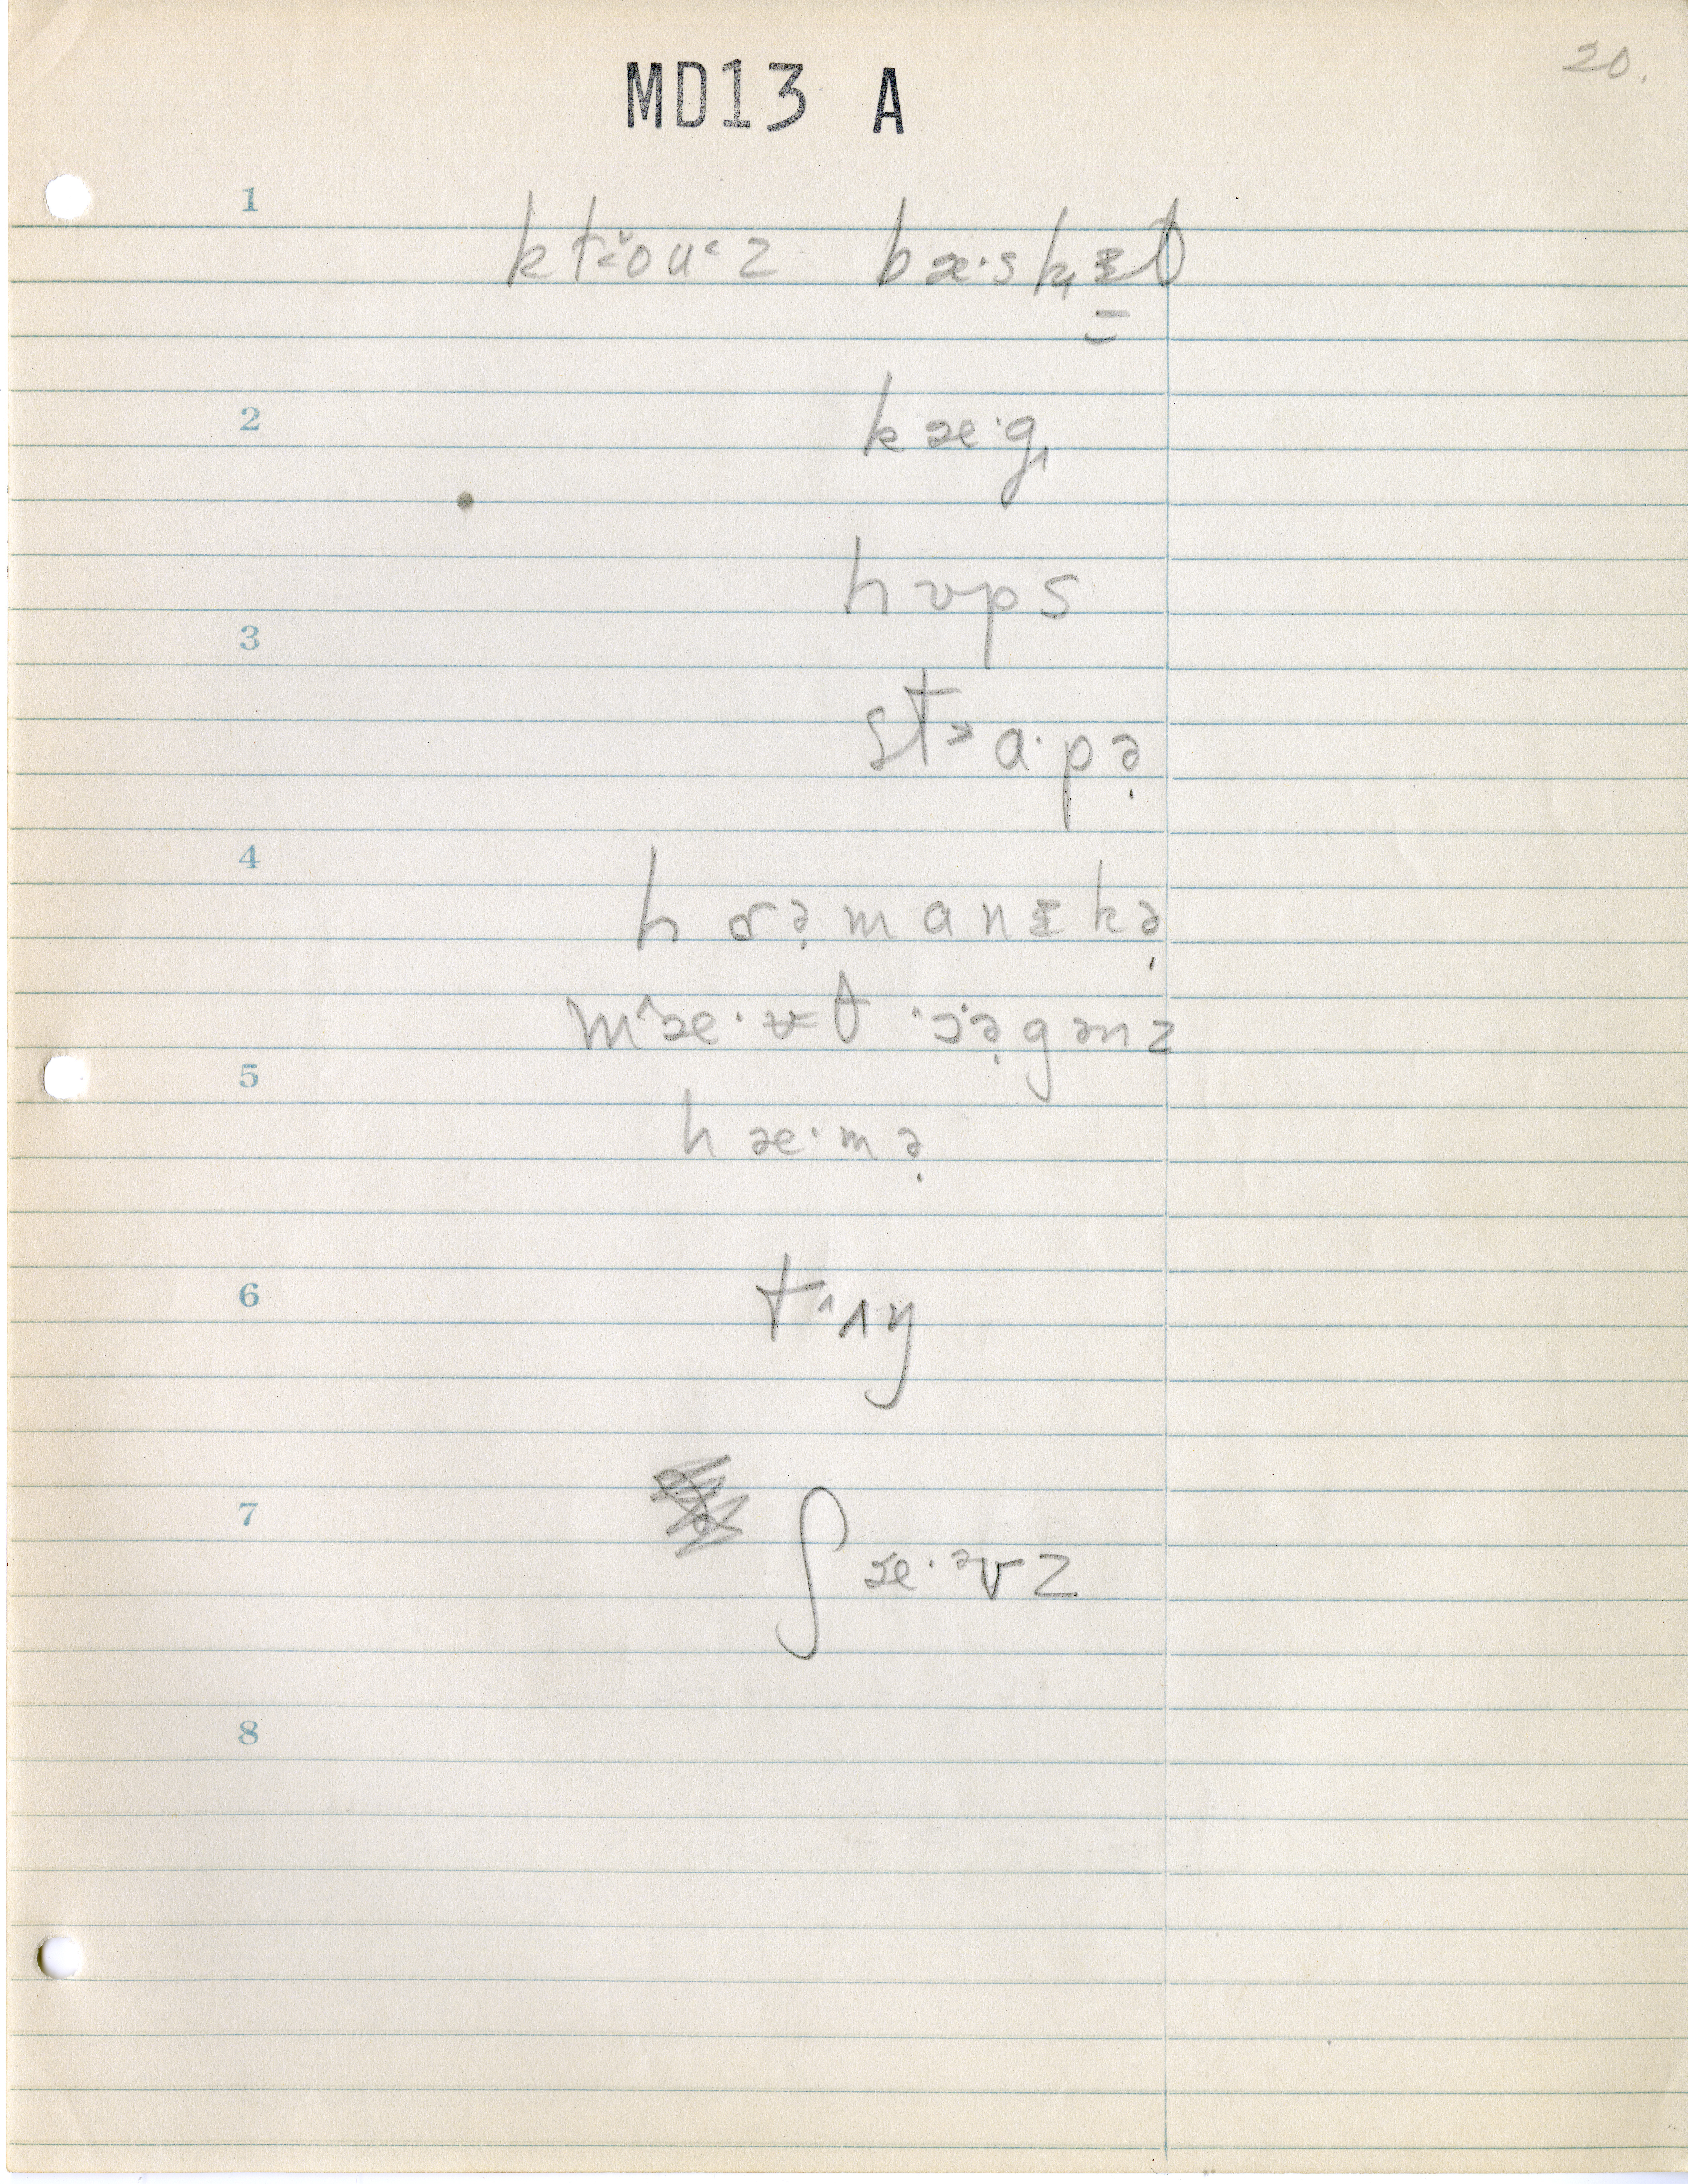 20.
MD13 A
1
kt˂ŏu˂z bæ·sk̟ᵻ̠t
2
kæ·g
hʊps
3
st˃a·pə̣
4
hɒə̣manᵻkə̣
mˆæ·ʊt ·ɔ·ə̣gənz
5
hæ·mə̣
6
t˄ʌŋ
7
ʃæ·ᵊvz
8